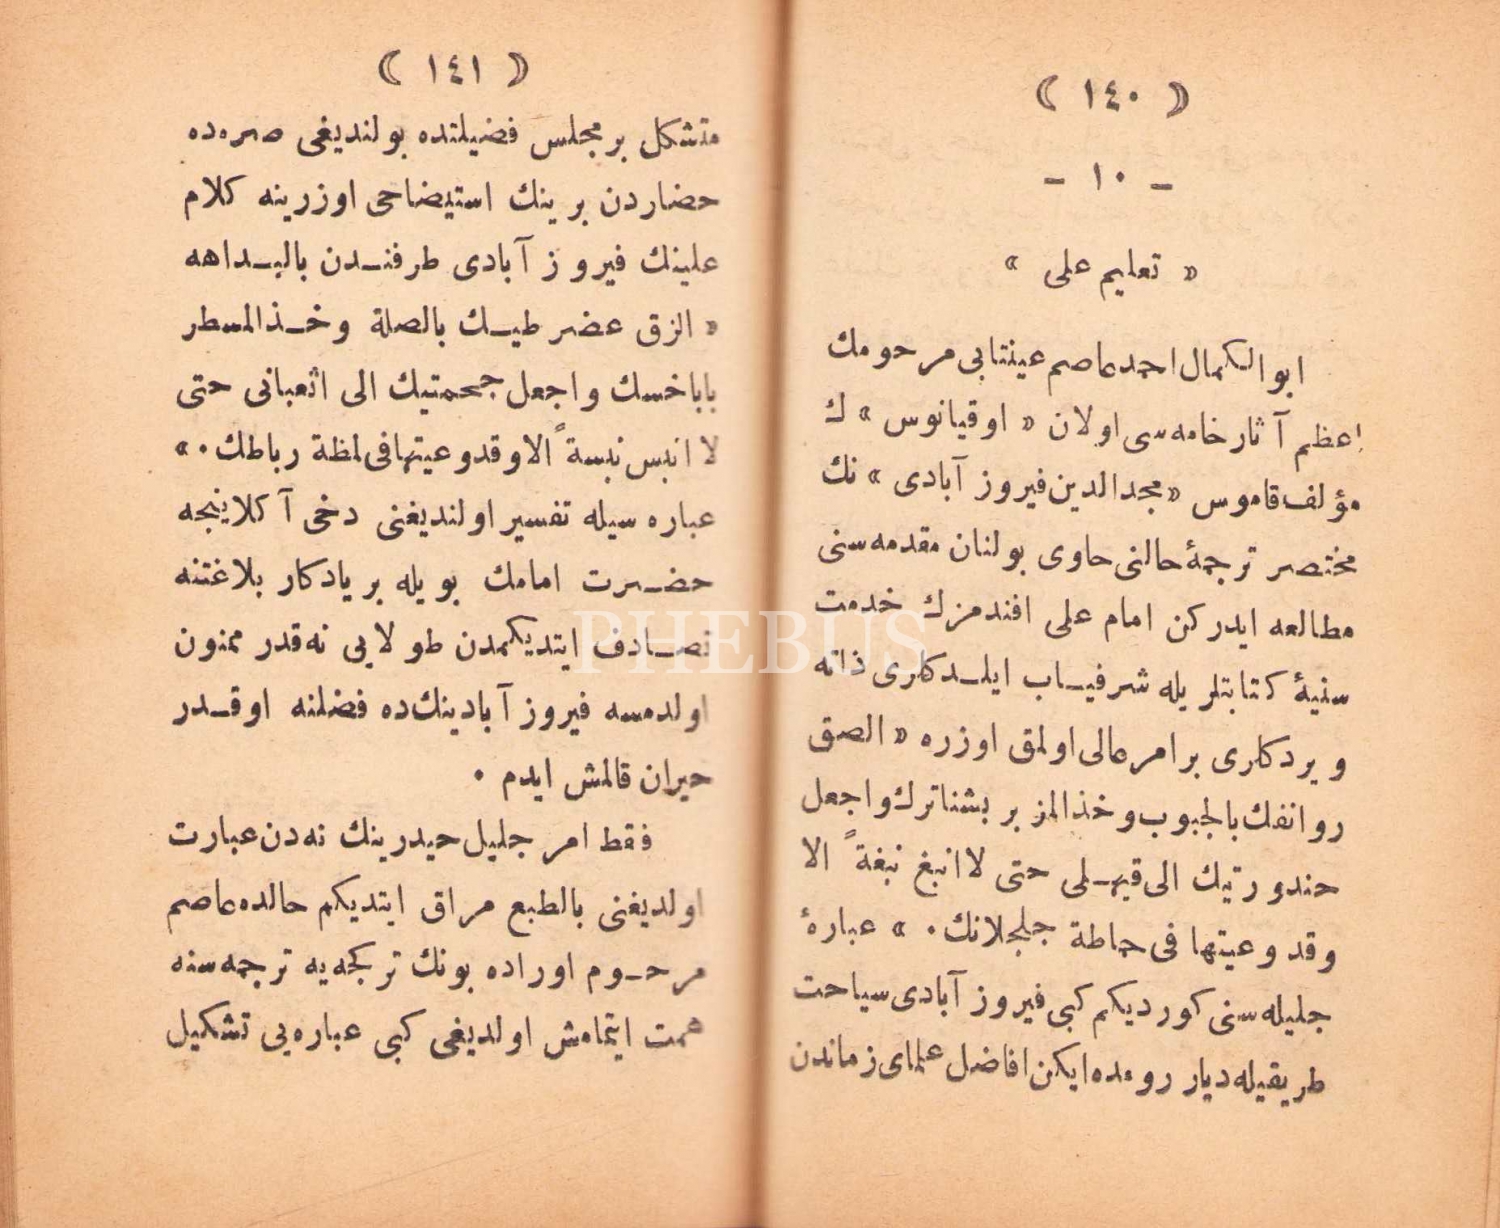 ( ١٤٠ )
- ١٠ -
« تعليم على »
ابو الكمال احمد عاصم عينتابى مرحومك
اعظم آثار خامه سى اولان « اوقيانوس » ك
مؤلف قاموس « مجد الدين فيروز آبادى » نك
مختصر ترجمۀ حالنى حاوى بولنان مقدمه سنى
مطالعه ايدركن امام على افندمزك خدمت
سنيۀ كتابتلريله شرفيـاب ايلـدكلرى ذاته
ويردكلرى بر امر عالى اولمق اوزره « الصق
روانفك بالجبوب وخذ المزبر بشناترك واجعل
حندورتيك الى قيهـلى حتى لا انبغ نبغةً الا
وقد وعيتها فى حماطة جلجلانك . » عبارۀ
جليله سنى كورديكم كبى فيروز آبادى سياحت
طريقيله ديار رومده ايكن افاضل علماى زماندن
( ١٤١ )
متشكل بر مجلس فضيلتده بولنديغى صره ده
حضاردن برينك استيضاحى اوزرينه كلام
علينك فيروز آبادى طرفنـدن بالبـداهه
« الزق عضرطيـك بالصلة وخـذ المسطر
باباخسك واجعل جحمتيك الى اثعبانى حتى
لا انبس نبسةً الا وقد وعيتها فى لمظة رباطك . »
عباره سيله تفسير اولنديغنى دخى آكلاينجه
حضـرت امامك بويله بر يادكار بلاغتنه
تصـادف ايتديكمدن طولايى نه قدر ممنون
اولدمسه فيروز آبادينك ده فضلنه اوقـدر
حيران قالمش ايدم .
فقط امر جليل حيدرينك نه دن عبارت
اولديغنى بالطبع مراق ايتديكم حالده عاصم
مرحـوم اوراده بونك تركجه يه ترجمه سنه
همت ايتمامش اولديغى كبى عباره يى تشكيل
PHEBUS